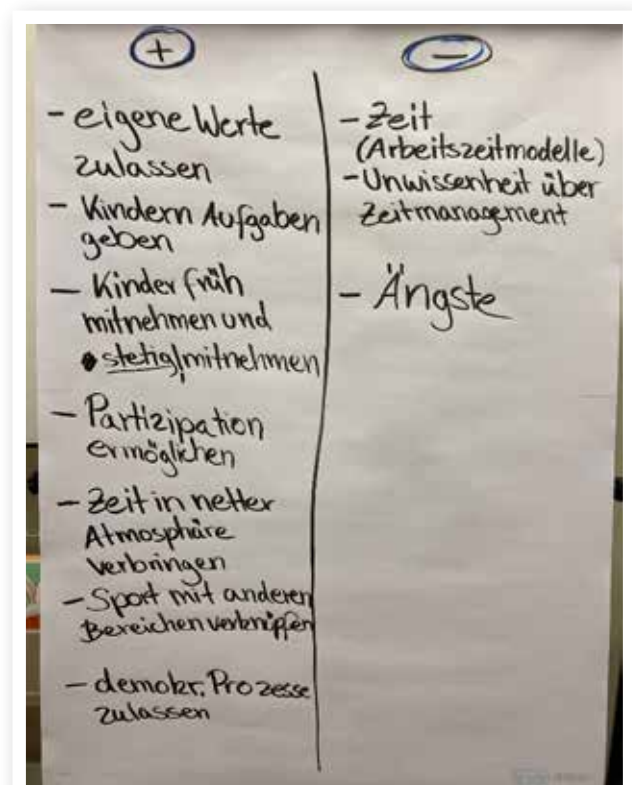 +
- eigene Werte
zulassen
- Kindern Aufgaben
geben
- Kinder früh
mitnehmen und
stetig mitnehmen
- Partizipation
ermöglichen
- Zeit in netter
Atmosphäre
verbringen
- Sport mit anderen
Bereichen verknüpfen
- demokr. Prozesse
zulassen
-
- Zeit
(Arbeitszeitmodelle)
- Unwissenheit über
Zeitmanagement
- Ängste